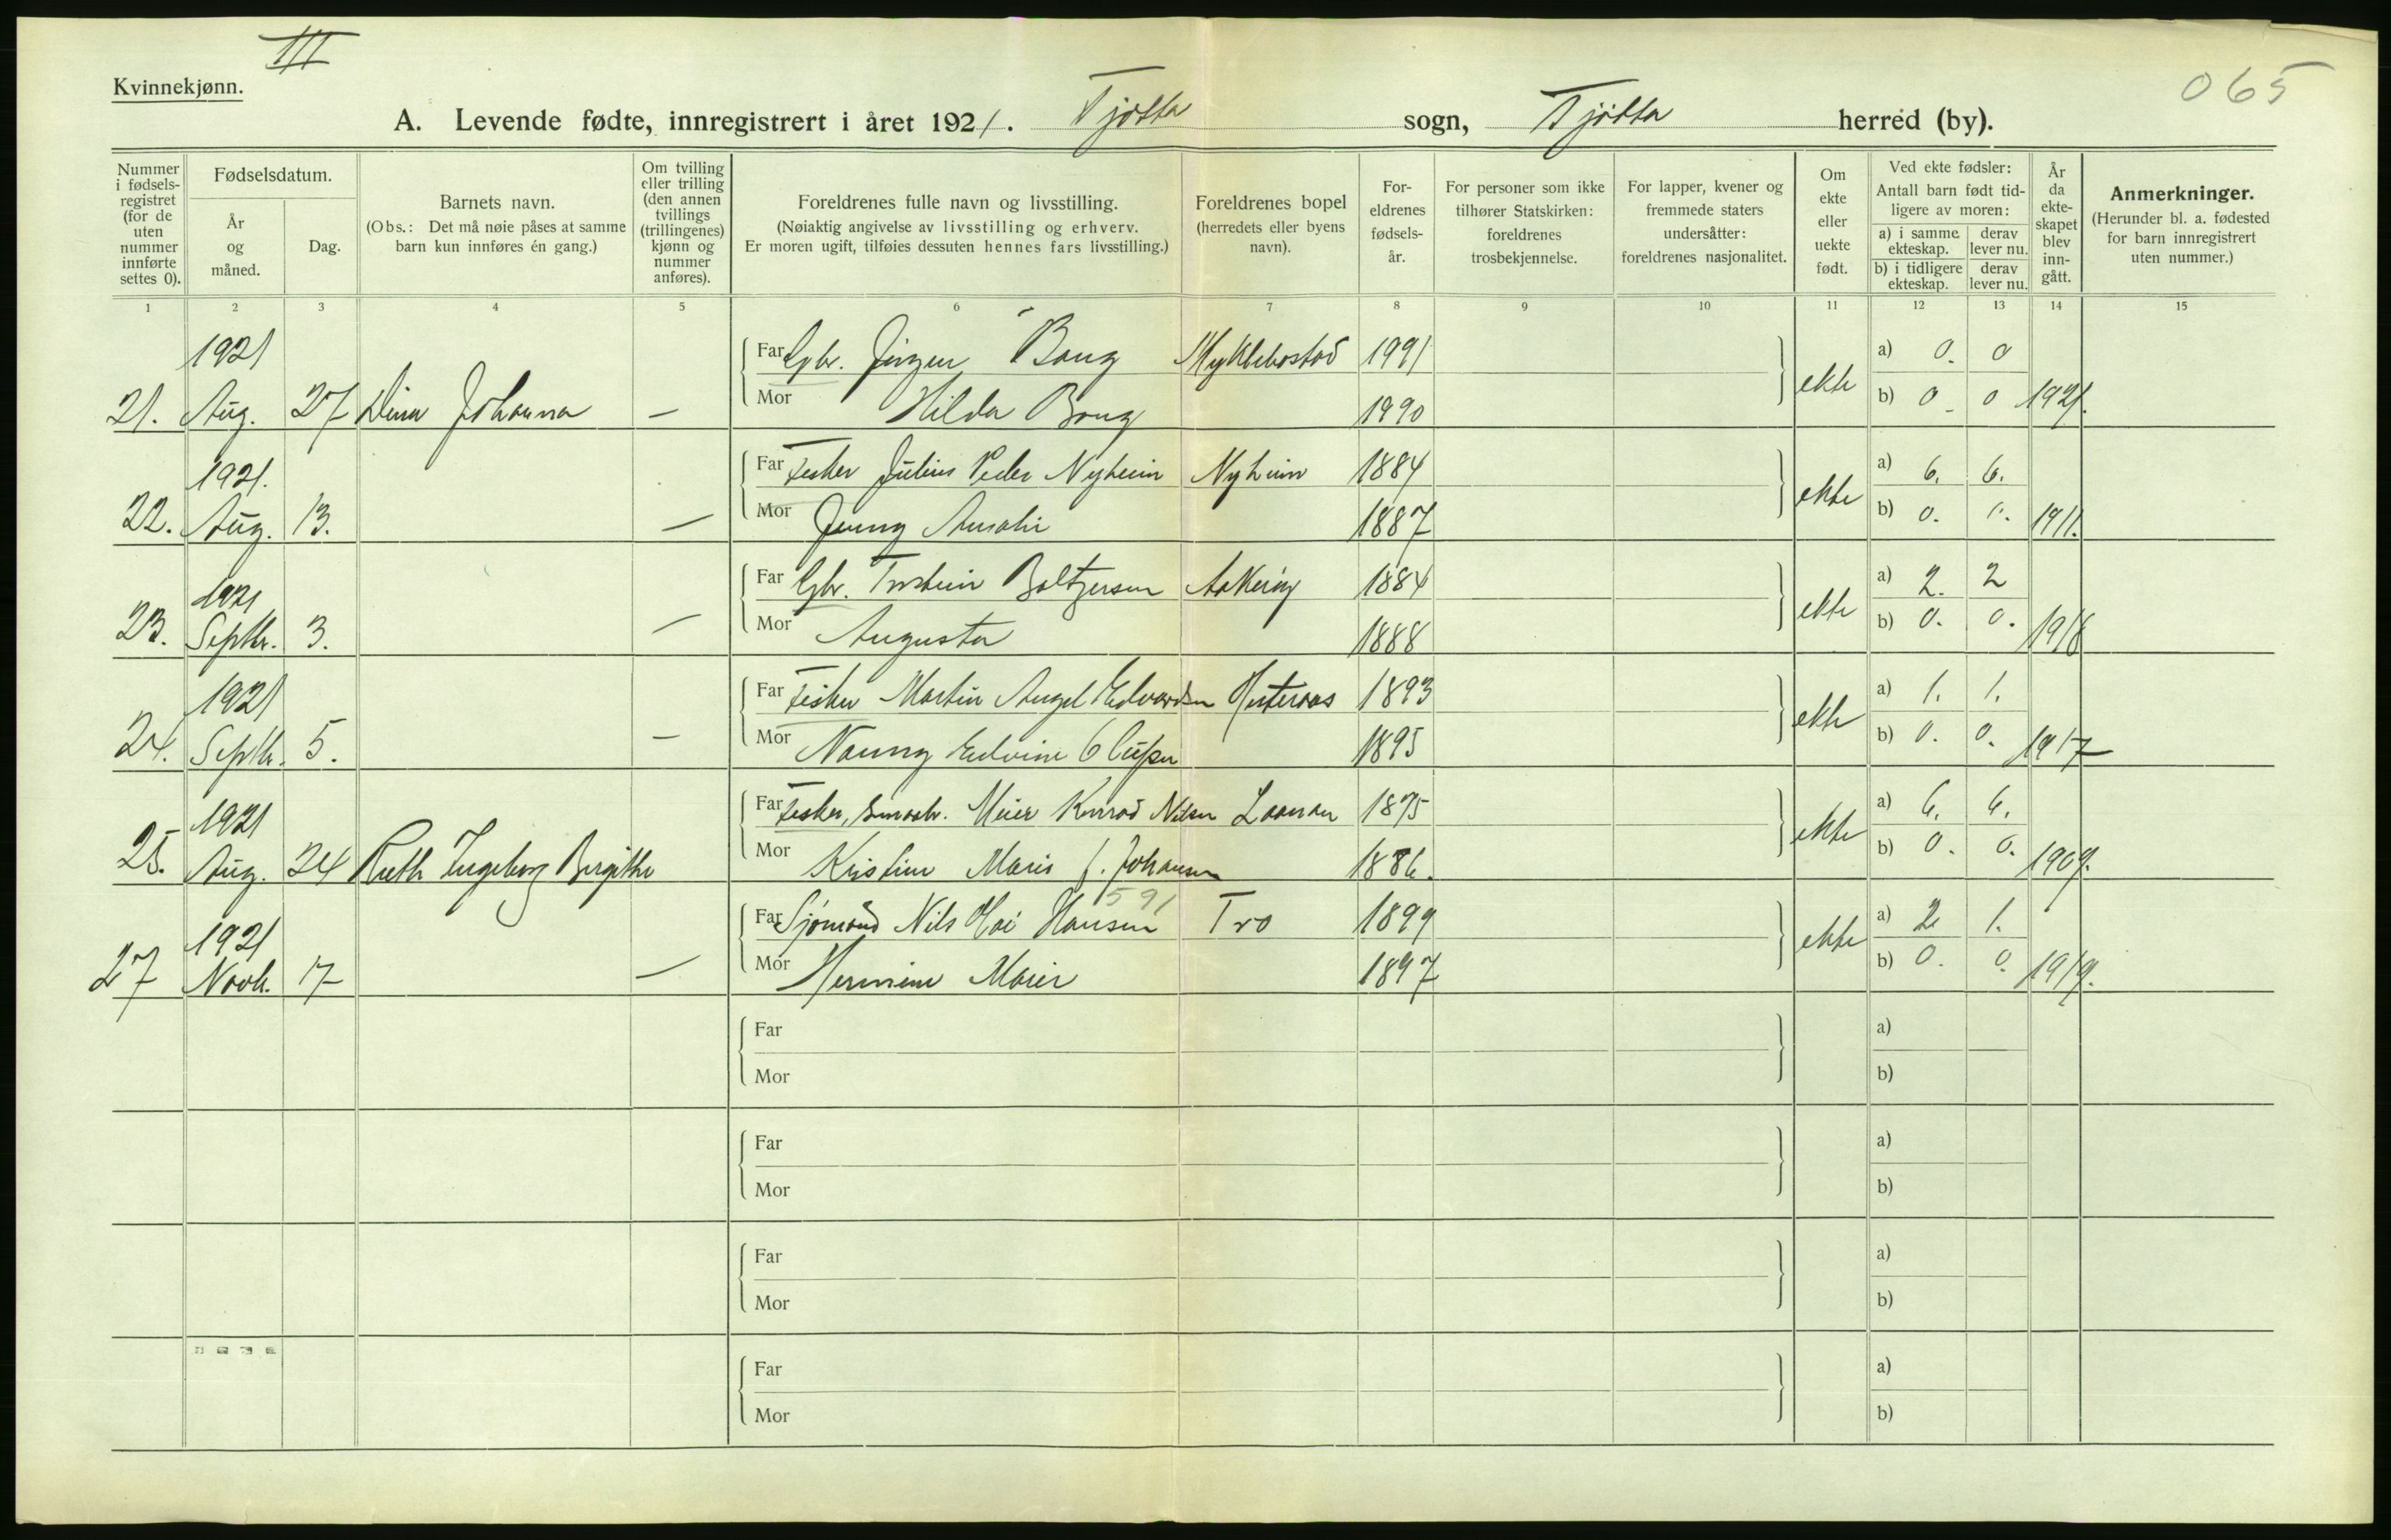 III
Kvinnekjønn.
065
A. Levende fødte, innregistrert i året 1921. Tjøtta sogn, Tjøtta herred (by).
Nummer i fødsels-registret (for de uten nummer innførte settes 0).
Fødselsdatum.
År og måned.
Dag.
Barnets navn.
(Obs.: Det må nøie påses at samme barn kun innføres én gang.)
Om tvilling eller trilling (den annen tvillings (trillingenes) kjønn og nummer anføres).
Foreldrenes fulle navn og livsstilling.
(Nøiaktig angivelse av livsstilling og erhverv.
Er moren ugift, tilføies dessuten hennes fars livsstilling.)
Foreldrenes bopel
(herredets eller byens navn).
For-eldrenes fødsels-år.
For personer som ikke tilhører Statskirken: foreldrenes trosbekjennelse.
For lapper, kvener og fremmede staters undersåtter: foreldrenes nasjonalitet.
Om ekte eller uekte født.
Ved ekte fødsler:
Antall barn født tid-ligere av moren:
a) i samme ekteskap.
derav lever nu.
b) i tidligere ekteskap.
derav lever nu.
År da ekte-skapet blev inn-gått.
Anmerkninger.
(Herunder bl. a. fødested for barn innregistrert uten nummer.)
1 2 3 4 5 6 7 8 9 10 11 12 13 14 15
1921
Far Gbr. Jörgen Bang Myklebostad 1991 a) 0. 0
21. Aug. 27 Johanna — Mor Hilda Bang 1990 ekte b) 0 0 1921.
1921.
Far Fisker Julius Peder Nyheim Nyheim 1884 a) 6. 6.
22. Aug. 13. — Mor Jenny 1887 ekte b) 0. 0. 1911.
1921
Far Gbr. Torstein Baltzersen 1884 a) 2. 2
23. Septbr. 3. — Mor Augusta 1888 ekte b) 0. 0. 1918
1921
Far Fisker Martin Angel Edvardsen 1893 a) 1. 1.
24. Septbr. 5. — Mor Nanny 1895 ekte b) 0. 0. 1917
1921
Far Fisker, Meier Konrad Nilsen 1875 a) 6. 6.
25. Aug. 24 Ruth Ingeborg Birgithe Mor Kristine Marie f. Johansen 1886. ekte b) 0. 0. 1909.
591
1921
Far Sjömand Nils Hansen Tro 1899 a) 2 1.
27 Novb. 17 — Mor 1897 ekte b) 0. 0. 1919.
Far a)
Mor b)
Far a)
Mor b)
Far a)
Mor b)
Far a)
Mor b)